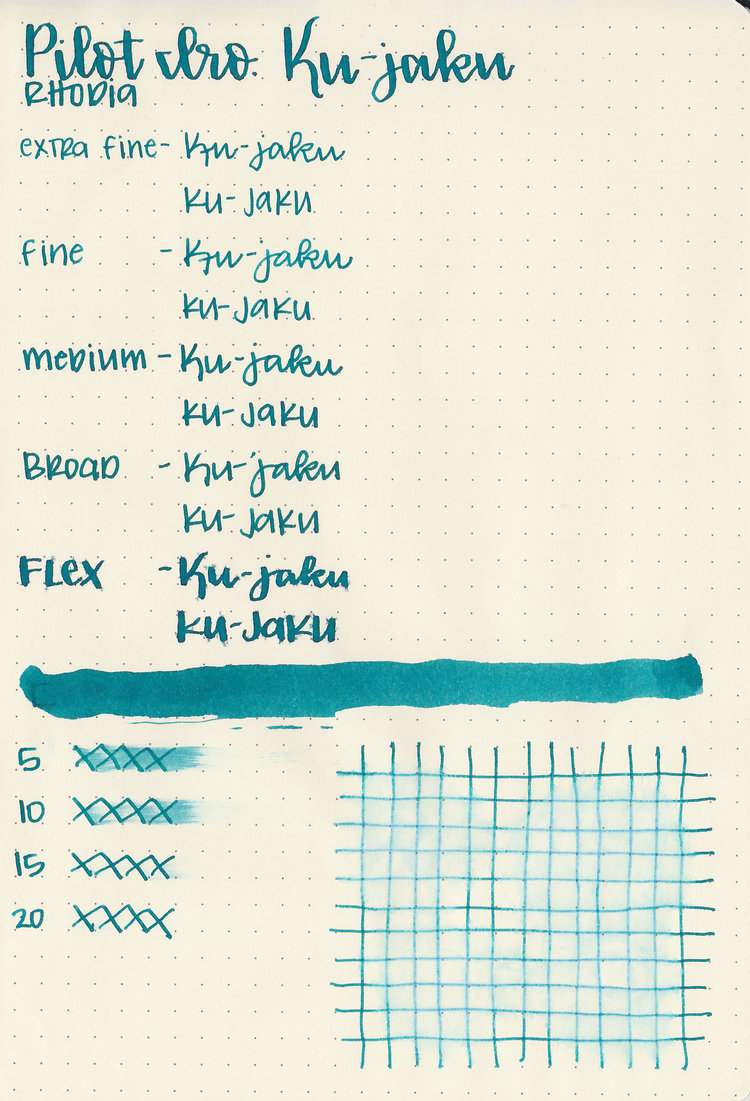 Pilot Iro. Ku-jaku
RHODIA
extra fine- Ku-jaku
Ku-Jaku
fine - Ku-jaku
Ku-Jaku
medium - Ku-jaku
Ku-Jaku
Broad - Ku-jaku
Ku-Jaku
Flex - Ku-jaku
Ku-Jaku
5 XXXX
10 XXXX
15 XXXX
20 XXXX